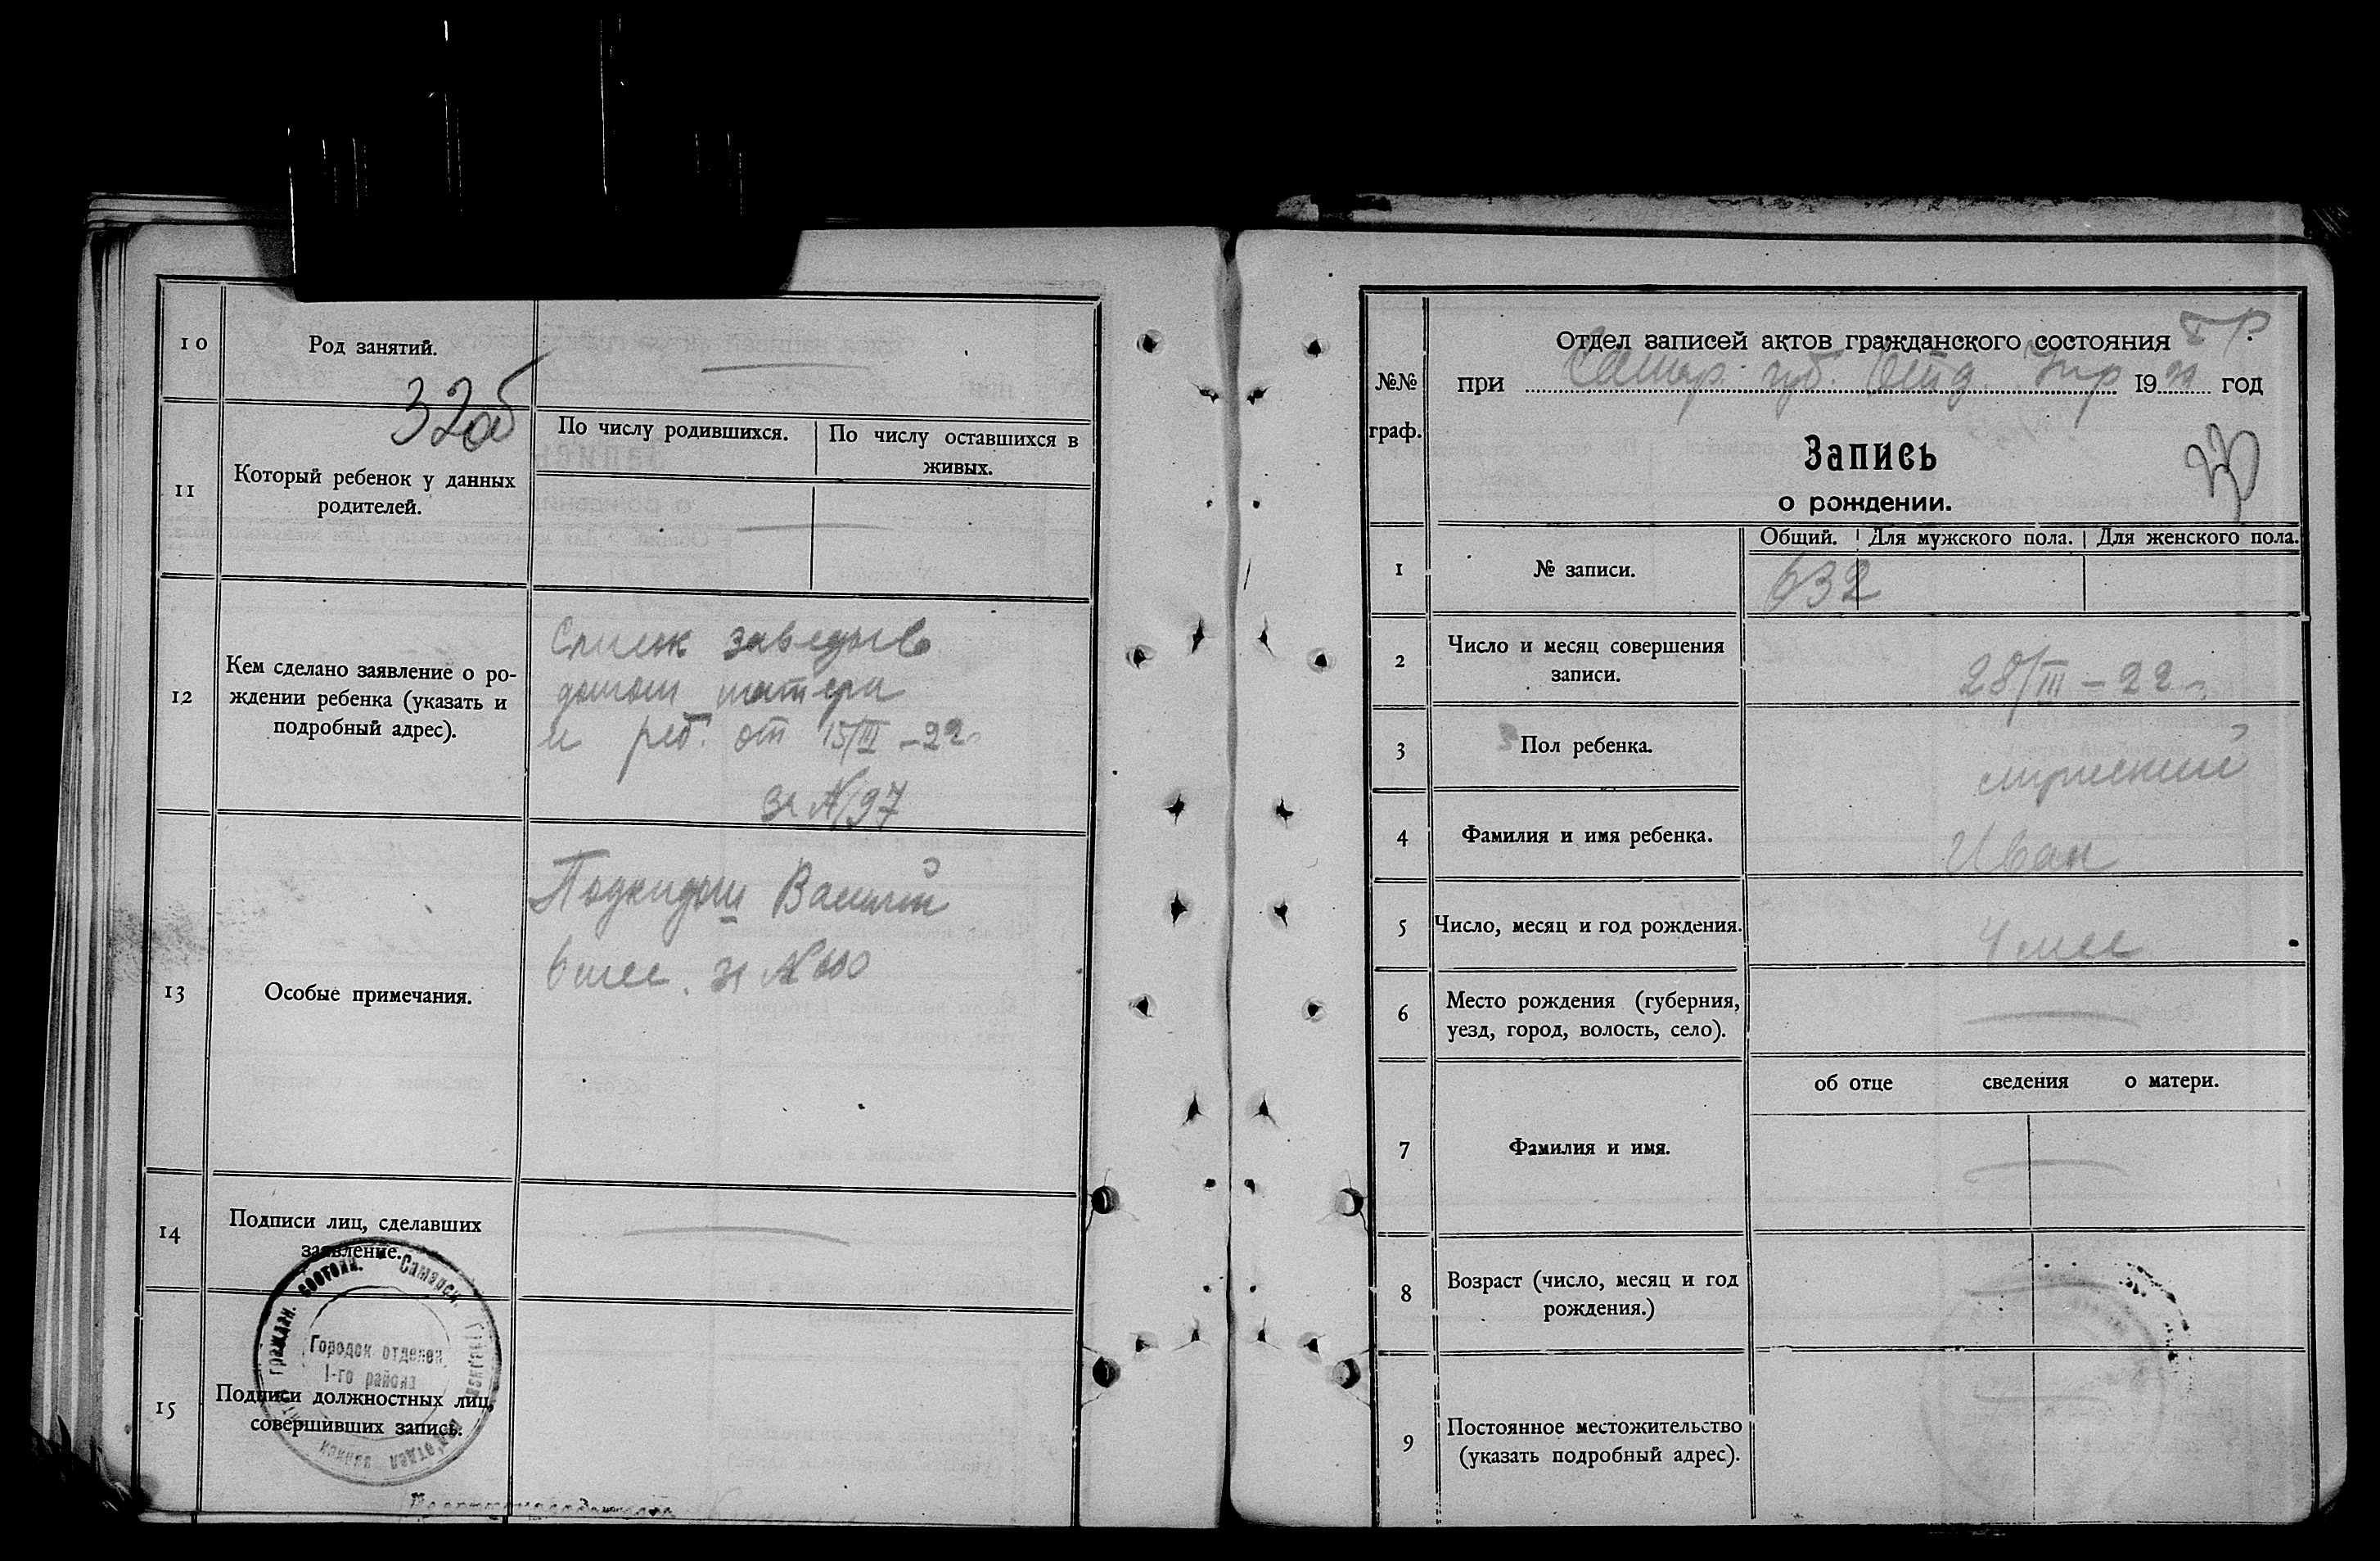 10
Род занятий.
32об
11
Который ребенок у данных
родителей.
По числу родившихся.
По числу оставшихся в
живых.
12
Кем сделано заявление о ро-
ждении ребенка (указать и
подробный адрес).
Список заведыв
домом матери
и реб. от 15/III – 22
за № 97
13
Особые примечания.
Подкидыш Василий
6 мес. за № 600
14
Подписи лиц, сделавших
заявление.
15
Подписи должностных лиц,
совершивших запись.
Самарск.
граждан. состоян.
отдел записи
Городск отделен
1-го района
№№
граф.
Отдел записей актов гражданского состояния
при Самар. губ. Отд. Упр 19 22 год
Запись
о рождении.
33
1
№ записи.
Общий.
Для мужского пола.
Для женского пола.
632
2
Число и месяц совершения
записи.
28/III – 22
3
Пол ребенка.
мужский
4
Фамилия и имя ребенка.
Иван
5
Число, месяц и год рождения.
4 мес
6
Место рождения (губерния,
уезд, город, волость, село).
об отце сведения о матери.
7
Фамилия и имя.
8
Возраст (число, месяц и год
рождения.)
9
Постоянное местожительство
(указать подробный адрес).